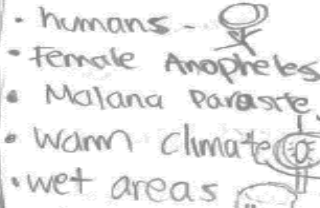 • humans -
• Female Anopheles
• Malaria Parasite
• Warm climate
• wet areas